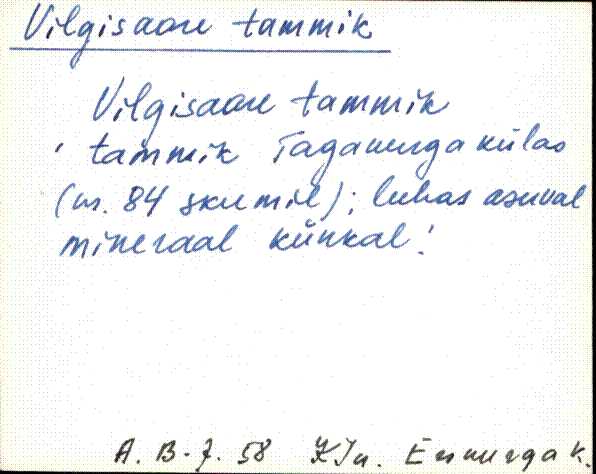 Vilgisaare tammik
Vilgisaare tammik
' tammik Taganurga külas
(nr. 84 skeemil); luhas asuval
mineraal künkal!
A. B-7. 58 KJn. Ennurga k.